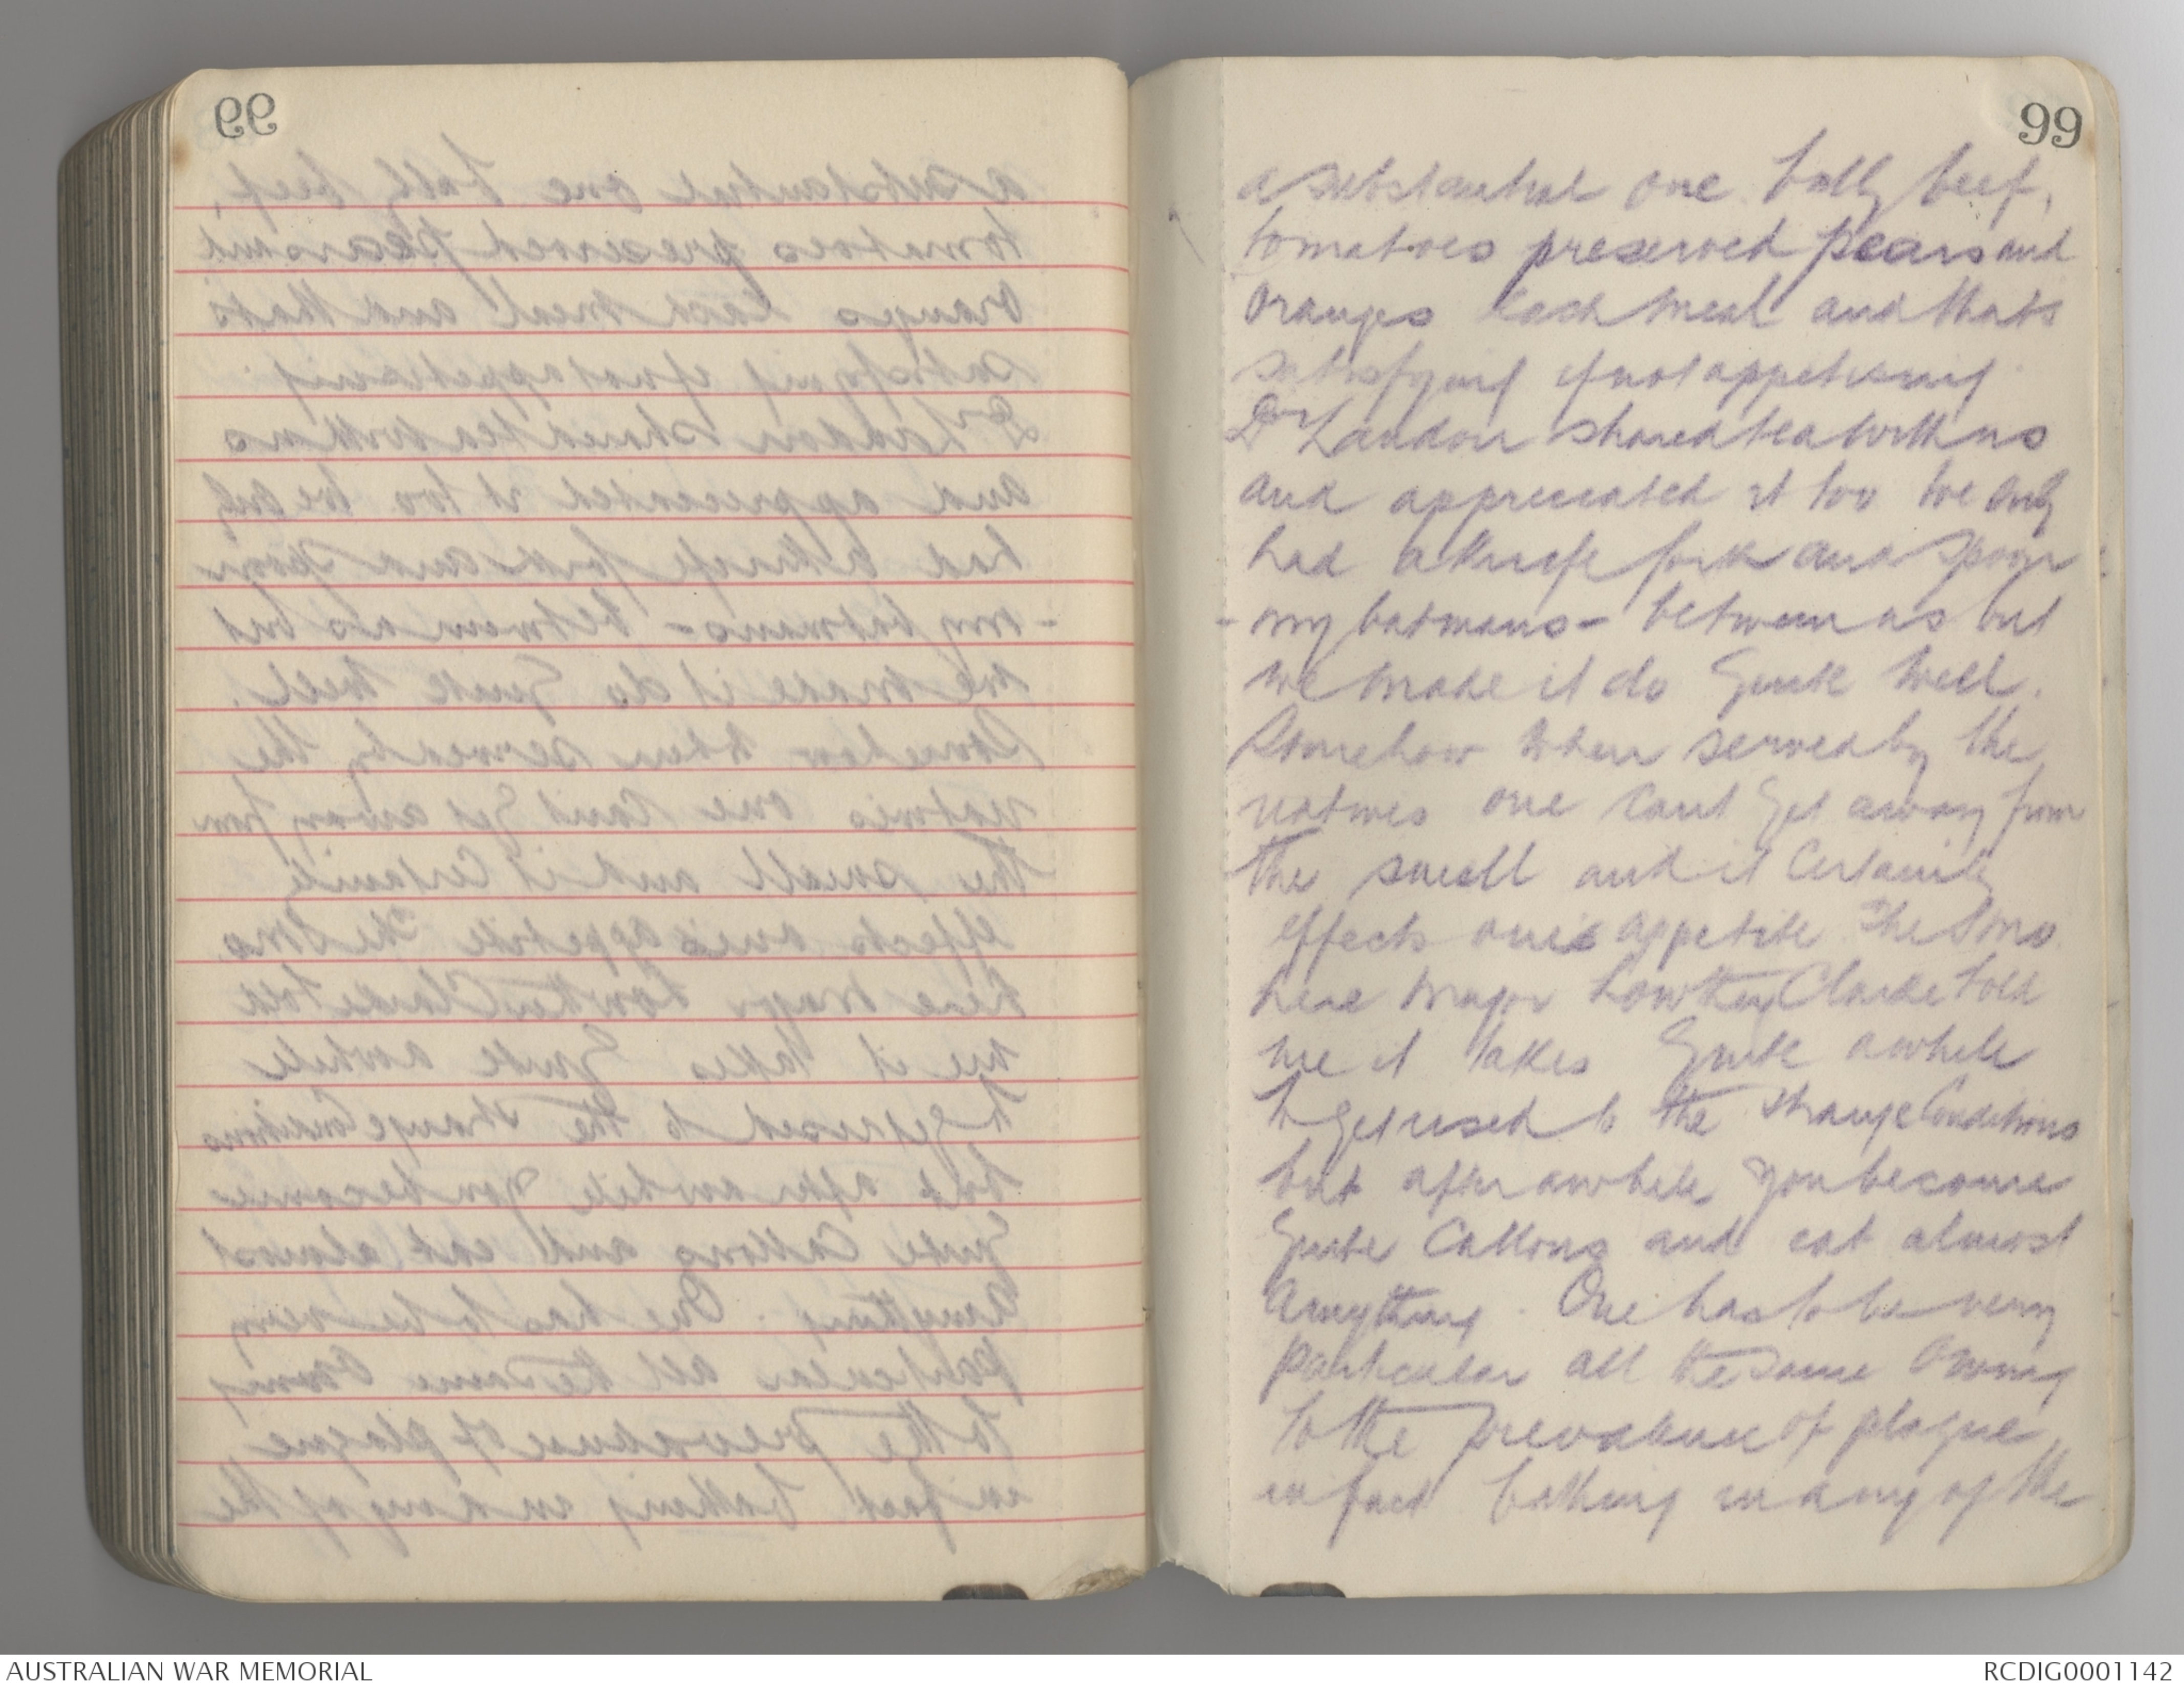 99
a substantial one bully beef,
tomatoes preserved pears and
oranges each meal and thats
satisfying if not appetising
Dr Landon shared tea with us
and appreciated it too we only
had a knife fork and spoon
- my batmans - between us but
we made it do quite well.
Somehow when served by the
natives one cant get away from
the smell and it certainly
effects one's appetite The SMO
here Major Lowthey Clarke told
me it takes quite awhile
to get used to the strange conditions
but after awhile you become
quite callous and eat almost
anything. One has to be very
particular all the same owing
to the prevalence of plague
in fact bathing in any of the
AUSTRALIAN WAR MEMORIAL
RCDIG0001142